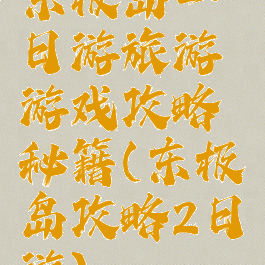 东极岛二
日游旅游
游戏攻略
秘籍(东极
岛攻略2日
游)